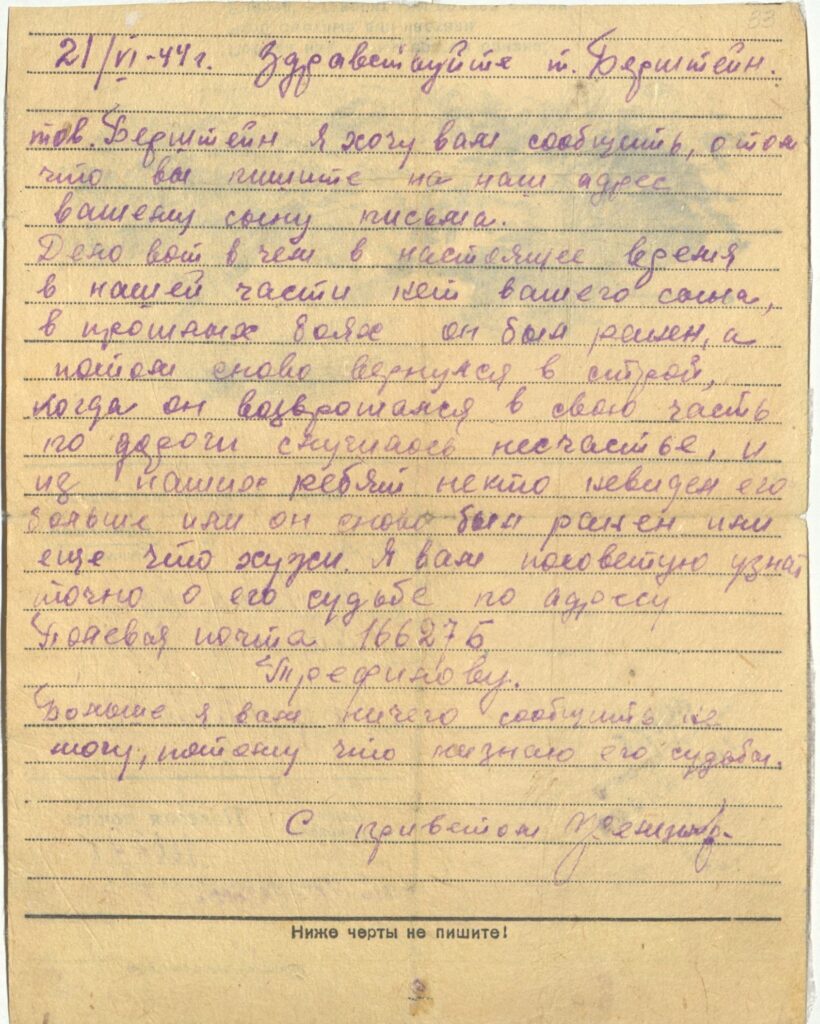 33
21/VI-44 г. Здравствуйте т. Берштейн.
тов. Берштейн я хочу вам сообщить, о том
что вы пишите на наш адрес
вашему сыну письма.
Дело вот в чем в настоящее время
в нашей части нет вашего сына,
в прошлых боях он был ранен, а
потом снова вернулся в строй,
когда он возврощался в свою часть
по дороги случилось несчастье, и
из наших ребят некто невидел его
больше или он снова был ранен или
еще что хужи. Я вам посоветую узнат
точно о его судьбе по адресу
Полевая почта 16627 Б
Трефилову.
Больше я вам ничего сообщить не
могу, потому что незнаю его судьбы.
С приветом
Ниже черты не пишите!